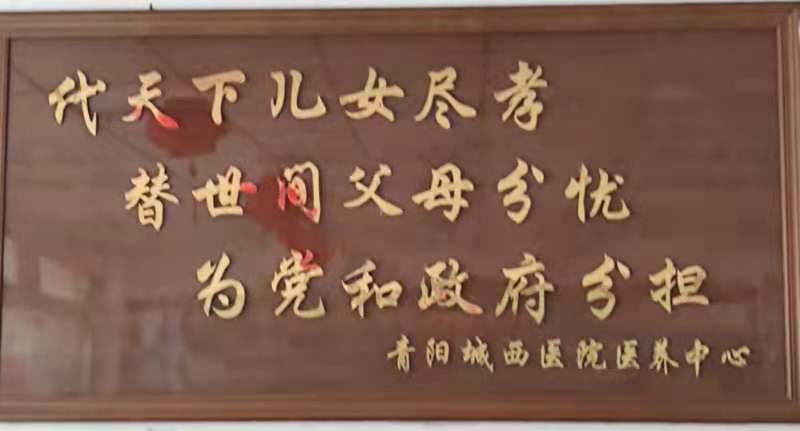 代天下儿女尽孝
替世间父母分忧
为党和政府分担
青阳城西医院医养中心